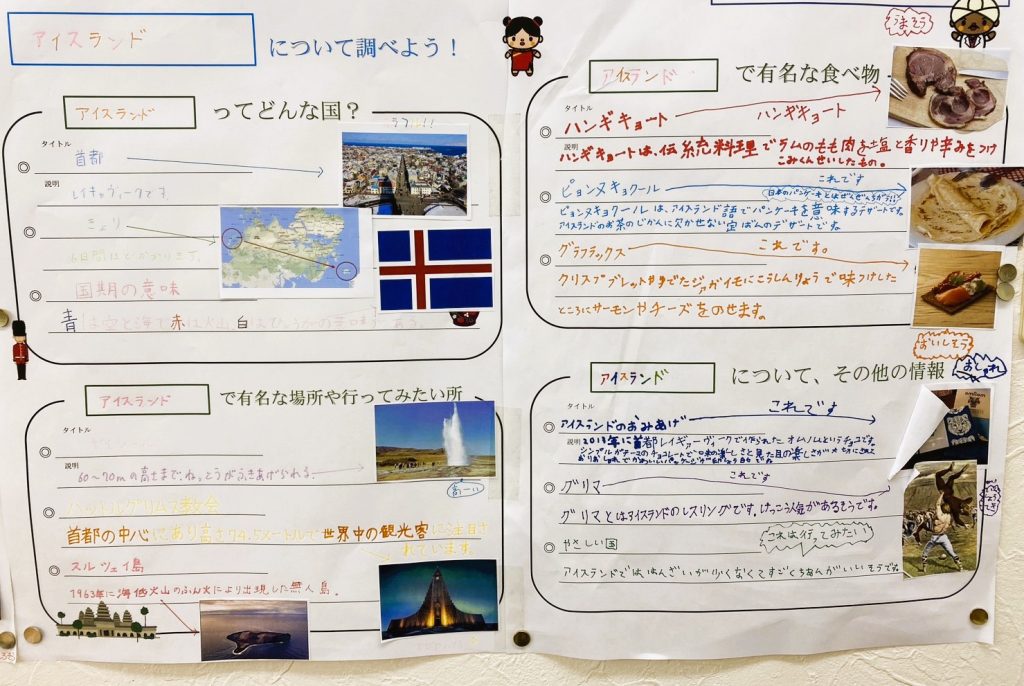 アイスランド について調べよう！
アイスランド ってどんな国？
タイトル
首都
説明
レイキャヴィークです
きょり
国期の意味
青は空と海で赤は火山、白は
アイスランド で有名な場所や行ってみたい所
タイトル
説明
60〜70mの高さまで、ねっとうがふきあげられる。
高ーい
ハットルグリムス教会
首都の中心にあり高さ74.5メートルで世界中の観光客に注目さ
れています。
スルツェイ島
1963年に海底火山のふん火により出現した無人島。
うまそう
アイスランド で有名な食べ物
タイトル
ハンギキョート
ハンギキョート
説明
ハンギキョートは、伝統料理でラムのもも肉を塩と香りや辛みをつけ
こみくんせいしたもの。
ピョンヌキョクール
これです
日本のパンケーキとはぜんぜんちがうよ
ピョンヌキョクールは、アイスランド語でパンケーキを意味するデザートです。
アイスランドのお茶のじかんに欠かせない定ばんのデザートです。
グラフラックス
これです。
クリスプブレッドやゆでたジャガイモにこうしんりょうで味つけした
ところにサーモンやチーズをのせます。
おいしそう
アイスランド について、その他の情報
おしゃれ
タイトル
アイスランドのおみあげ
これです
説明
2013年に首都レイキャーヴィークで作られたオムノムというチョコです。
グリマ
これです
グリマとはアイスランドのレスリングです。けっこう人気があるそうです。
やさしい国
これは行ってみたい
アイスランドでははんざいが少くなくてすごくちあんがいいそうです。